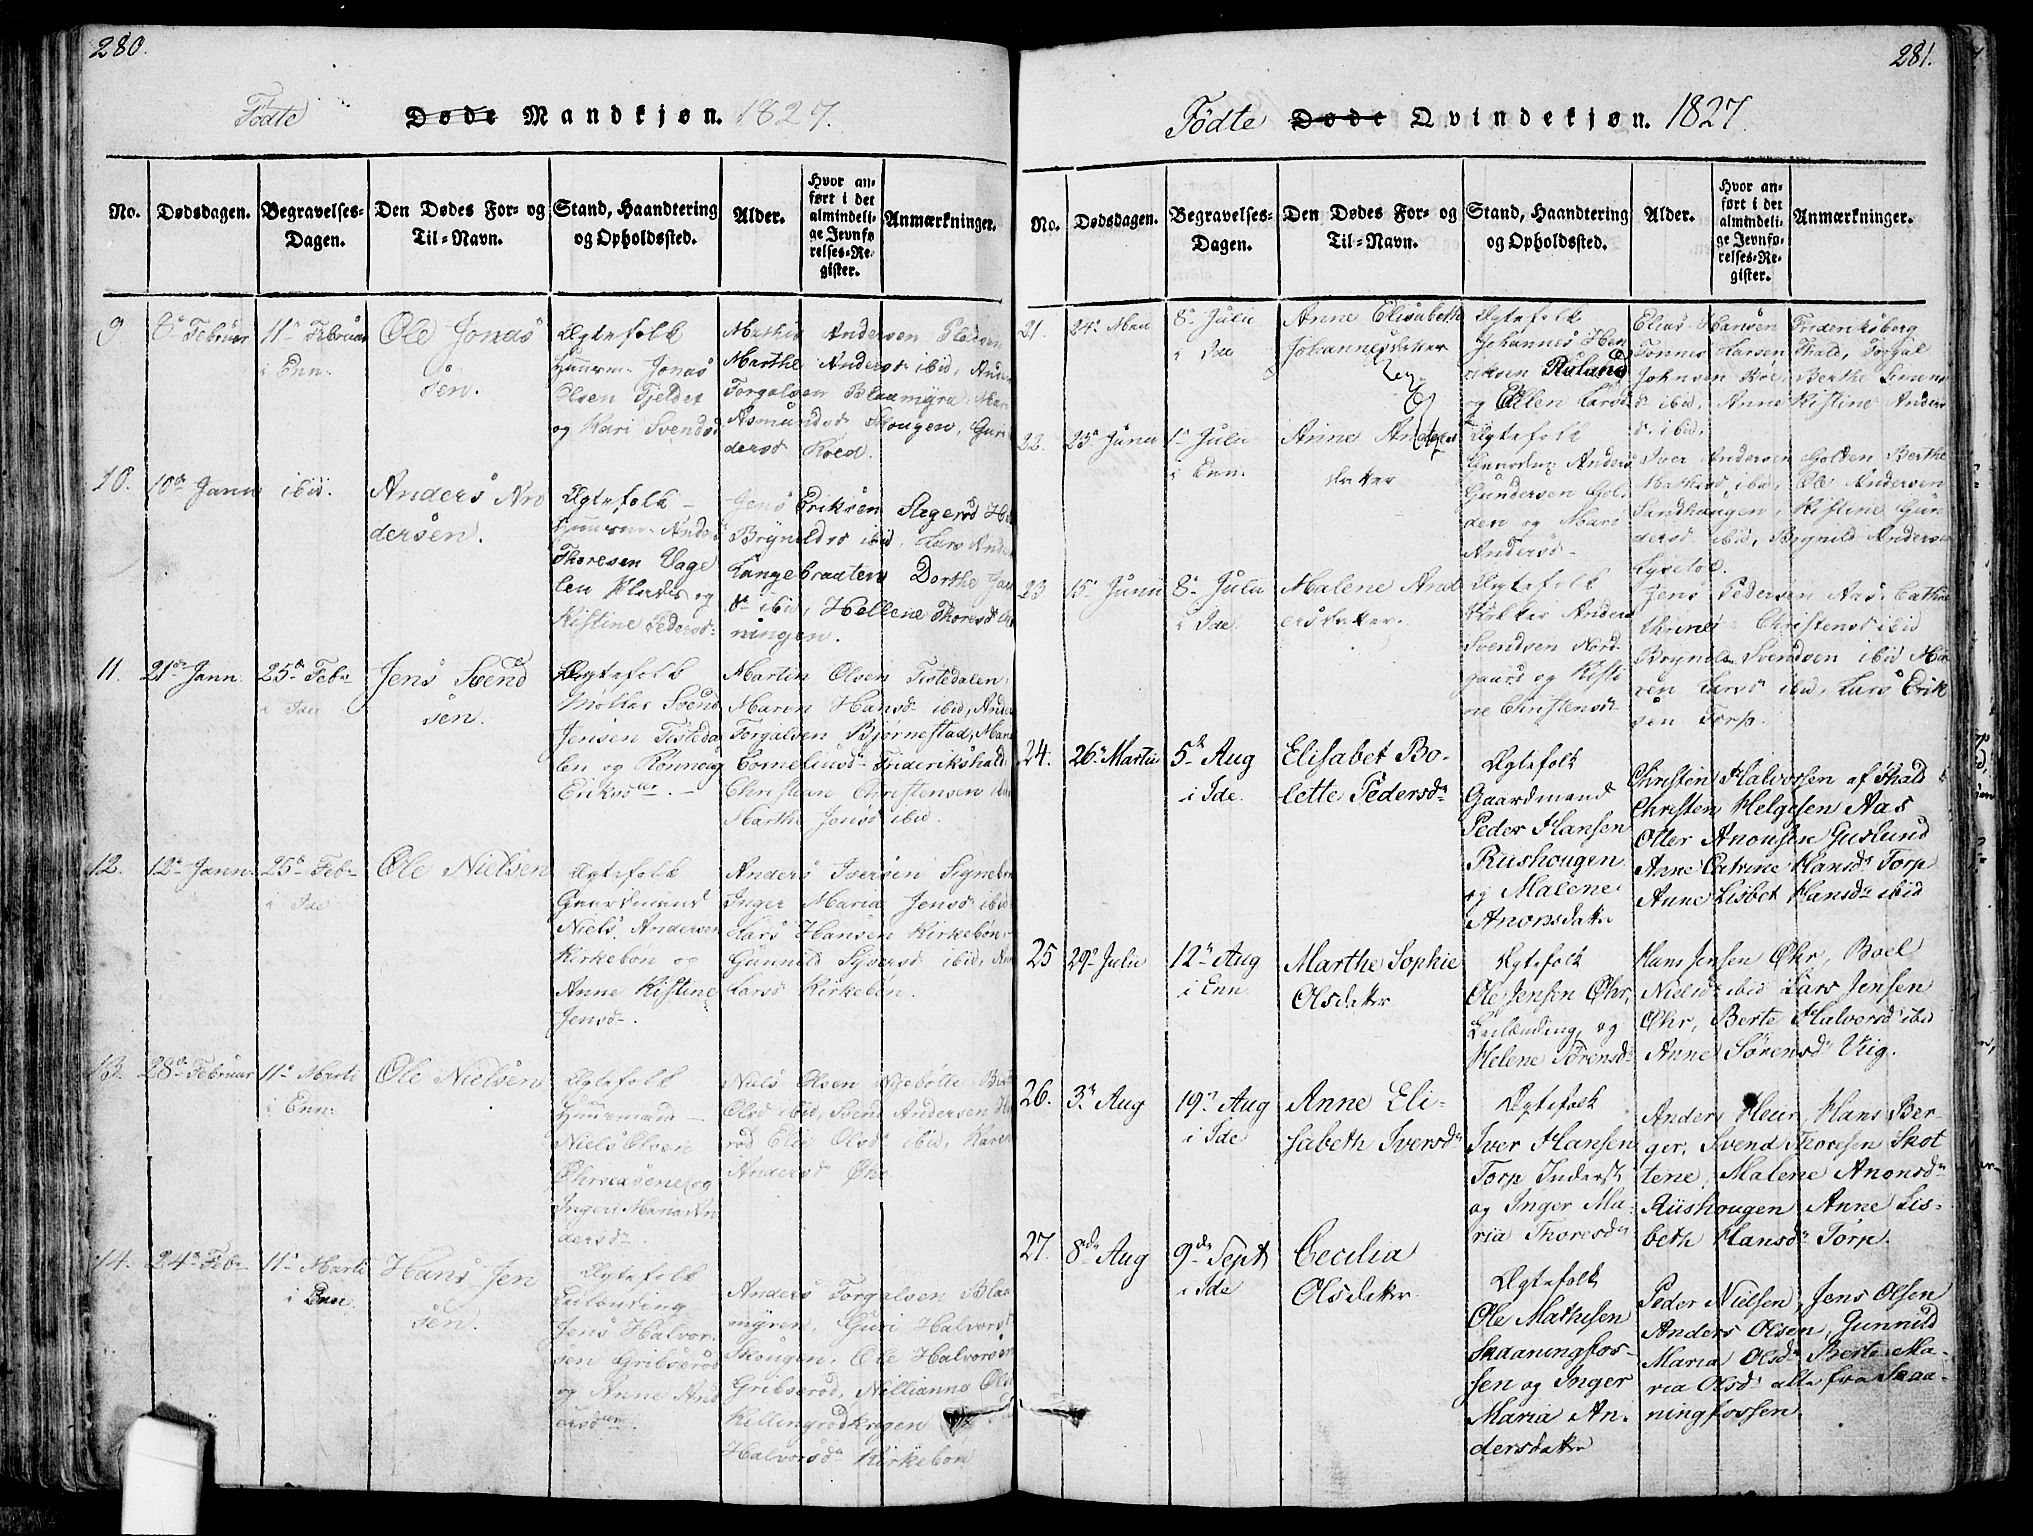 280.
Fødte Døde Mandkjøn. 1827.
No. Dødsdagen. Begravelses-Dagen. Den Dødes For- og Til-Navn. Stand, Haandtering og Opholdssted. Alder. Hvor anført i det almindelige Jevnførelses-Register. Anmærkninger.
9. 8de Februar 11te Februar i Enn. Ole Jonas
sen.
Ægtefolk
Huusm. Jonas
Olsen Tjeldet
og Kari Svendsd
Mathis Andersen
Marthe Andersd ibid,
Torgalsen Blaamyra,
Asmundsd Skougen, Guri
dersd Koed.
10. 10de Jann ibid. Anders An
dersen.
Ægtefolk
Huusm. Anders
Thoresen Vage
len Plads og
Kistine Pedersd
Jens Eriksen Slagerød
Brynildsd ibid, Lars
Langebraaten Dorthe
ibid, Hellene Thoresd
ningen.
11. 21de Jann. 25de Febr i Ide Jens Svend
sen.
Ægtefolk
Møller Svend
Jensen Tistedа
len og Rønnoug
Eriksdter.
Martin Olsen Tistedalen,
Maren Hansd ibid,
Torgalsen Bjørnestad,
Corneliusd Friderikshald
Christian Christensen
Marthe Jensd ibid.
12. 12te Jann. 25de Febr i Ide Ole Nielsen
Ægtefolk
Gaardmand
Niels Andersen
Kirkebøn og
Anne Kistine
Jensd.
Anders Iversen
Inger Maria Jensd ibid
Lars Hansen Kirkebøn,
Gunnild Syversd ibid,
Larsd Kirkebøn.
13. 28de Februar 11te Marti i Enn. Ole Nielsen
Ægtefolk
Huusmand
Niels Olsen
og
Inger Maria An
dersd.
Niels Olsen
Olsd ibid, Svend Andersen
rød Elie Olsd ibid,
Andersd Øhr
14. 24de Febr. 11te Marti i Enn Hans Jen
sen.
Ægtefolk
Leilending
Jens Halvor
sen Gribserød
og Anne And
ersdter
Anders Torgalsen Blaa
myren, Guri Halvorsd
Skougen, Ole Halvorsen
Gribserød,
Killingrødkrogen
Halvorsd Kirkebøn
281.
Fødte Døde Qvindekjøn. 1827
No. Dødsdagen. Begravelses-Dagen. Den Dødes For- og Til-Navn. Stand, Haandtering og Opholdssted. Alder. Hvor anført i det almindelige Jevnførelses-Register. Anmærkninger.
21. 24de Mai 8de Julii i Ide Anne Elisabeth
Johannesdatter
Ægtefolk
Johannes Hen
riksen Ruland
og Ellen Larsd
Elias Hansen Frideriksberg
Tønnes Larsen Fhald, Torgal
Johnsen Roe, Berthe Simens
d ibid, Anne Kistine Anders
d. ibid.
22. 25de Junii 1te Julii i Enn. Anne Anders
datter
Ægtefolk
Anders
Gundersen Gol
den og Mari
Andersd
Iver Andersen Golden Berthe
Mathisd ibid, Ole Andersen
Sandhougen, Kistine Gun
dersd ibid, Brynild Andersen
23 15de Junii 8de Julii i Ide. Malene And
ersdatter.
Ægtefolk
Anders
Svendsen Nord
gaard og Kisti
ne Christensd
Jens Pedersen Aas, Catha
thrine Christensd ibid
Svendsen ibid Ma
ren Larsd ibid, Lars Erik
sen Torp.
24. 26de Martii 5te Aug i Ide. Elisabet Bo-
lette Pedersd
Ægtefolk
Gaardmand
Peder Hansen
Rishougen
og Malene
Anonsdatter
Christen Halvorsen af Fhald
Christen Helgesen Aas
Otter Anonsen Guslund
Anne Catrine Hansd Torp
Anne Lisbet Hansd ibid
25 29de Julii 12te Aug i Enn Marthe Sophie
Olsdatter
Ægtefolk
Ole Jensen Øhr,
Leilending og
Helene Sørensd
Hans Jensen Øhr, Boel
Nielsd ibid Lars Jensen
Øhr, Berte Halvorsd ibid
Anne Sørensd Viig.
26. 3de Aug 19de Aug i Ide Anne Eli-
sabeth Iversd
Ægtefolk
Iver Hansen
Torp Inderst
og Inger Ma-
ria Thoresd
Anders Heier, Hans Ber-
ger, Svend Thoresen Skot
tene, Malene Anonsd
Riishougen Anne Lis-
beth Hansd Torp.
27. 8de Aug 9de Sept i Ide Cecilia
Olsdatter.
Ægtefolk
Ole Mathisen
Skaaningfos-
sen og Inger
Maria An-
dersdatter
Peder Nielsen, Jens Olsen
Anders Olsen, Gunnild
Maria Olsd Berte Ma-
ria Olsd alle fra Skaa-
ningfossen.